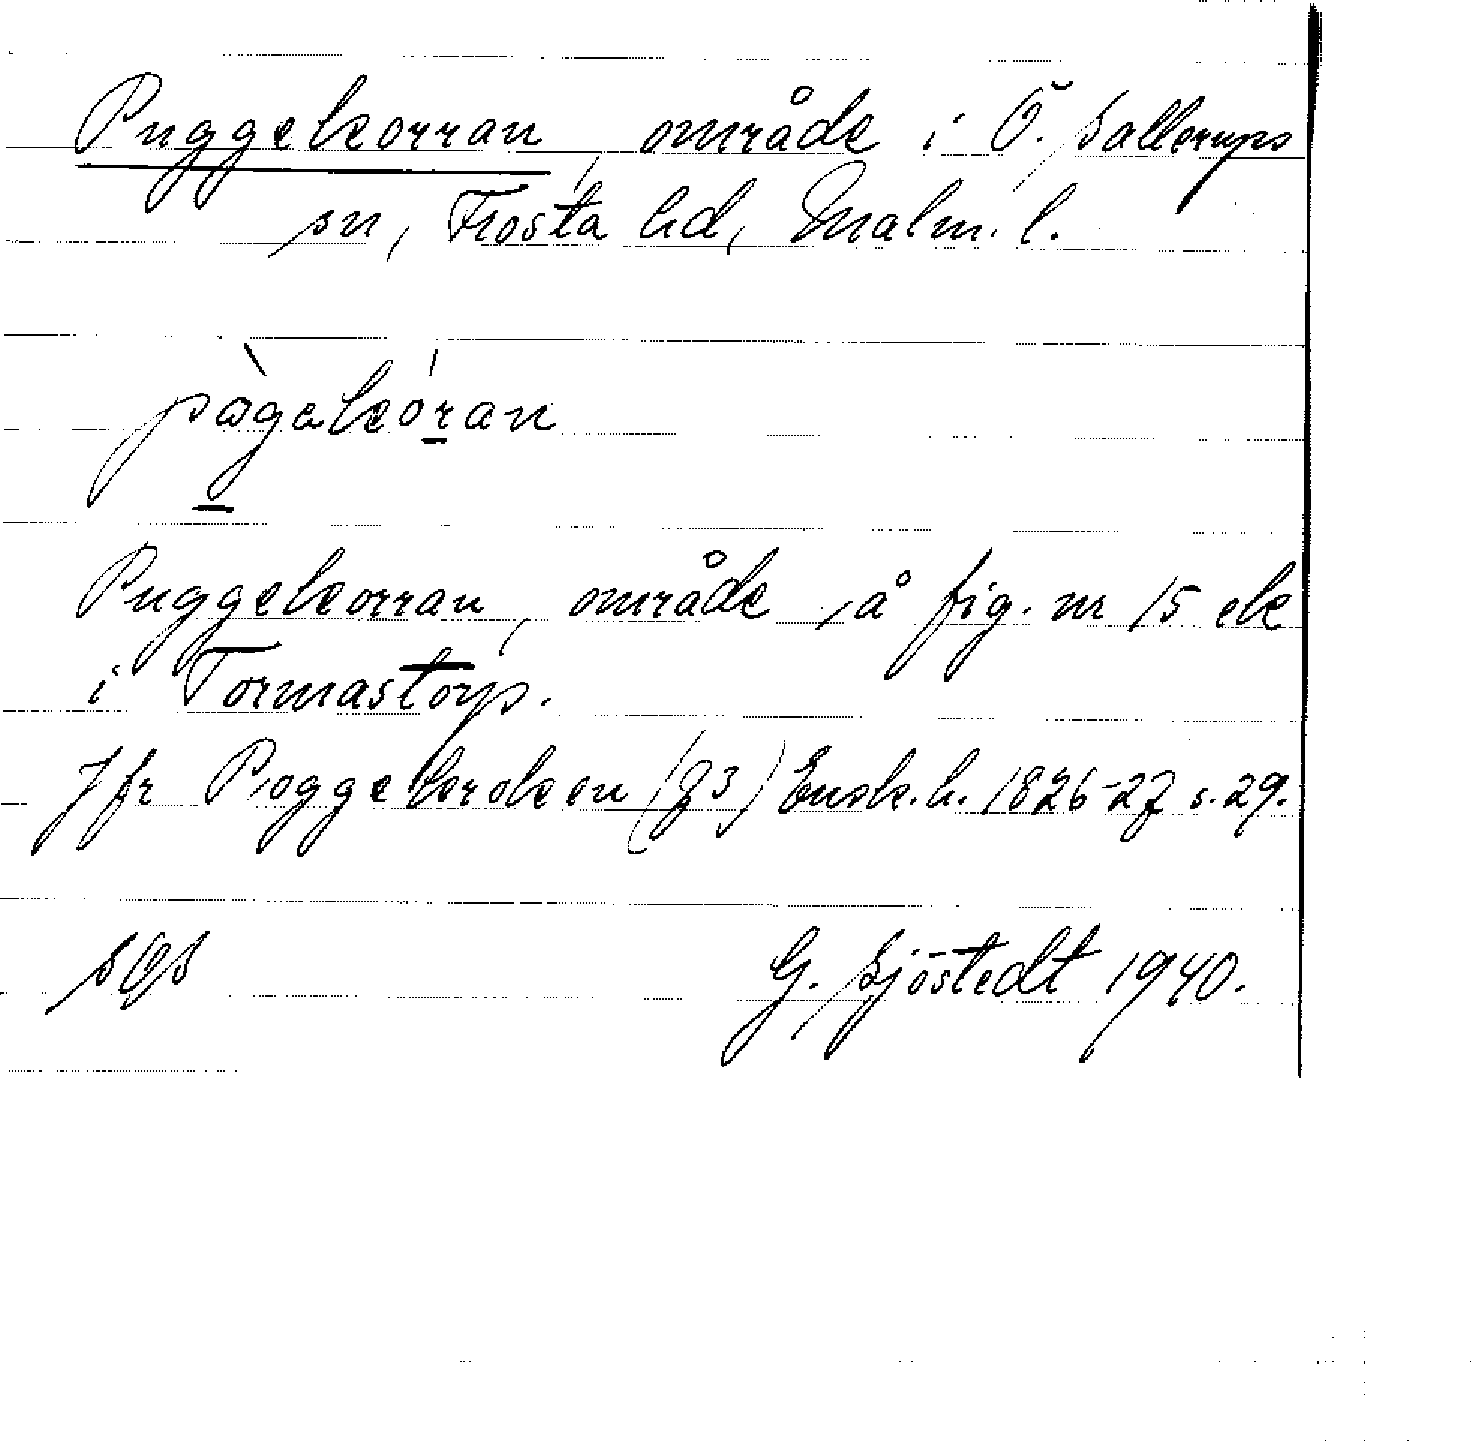 Puggekorran, område i Ö. Sallerups
sn, Frosta hd, Malm. l.
pògakóran
Puggekorran, område, å fig. nr 15 ek
i Tormastorp.
Jfr Poggekroken (g3) Ensk. h. 1826-27 s. 29.
SOS
G. Sjöstedt 1940.